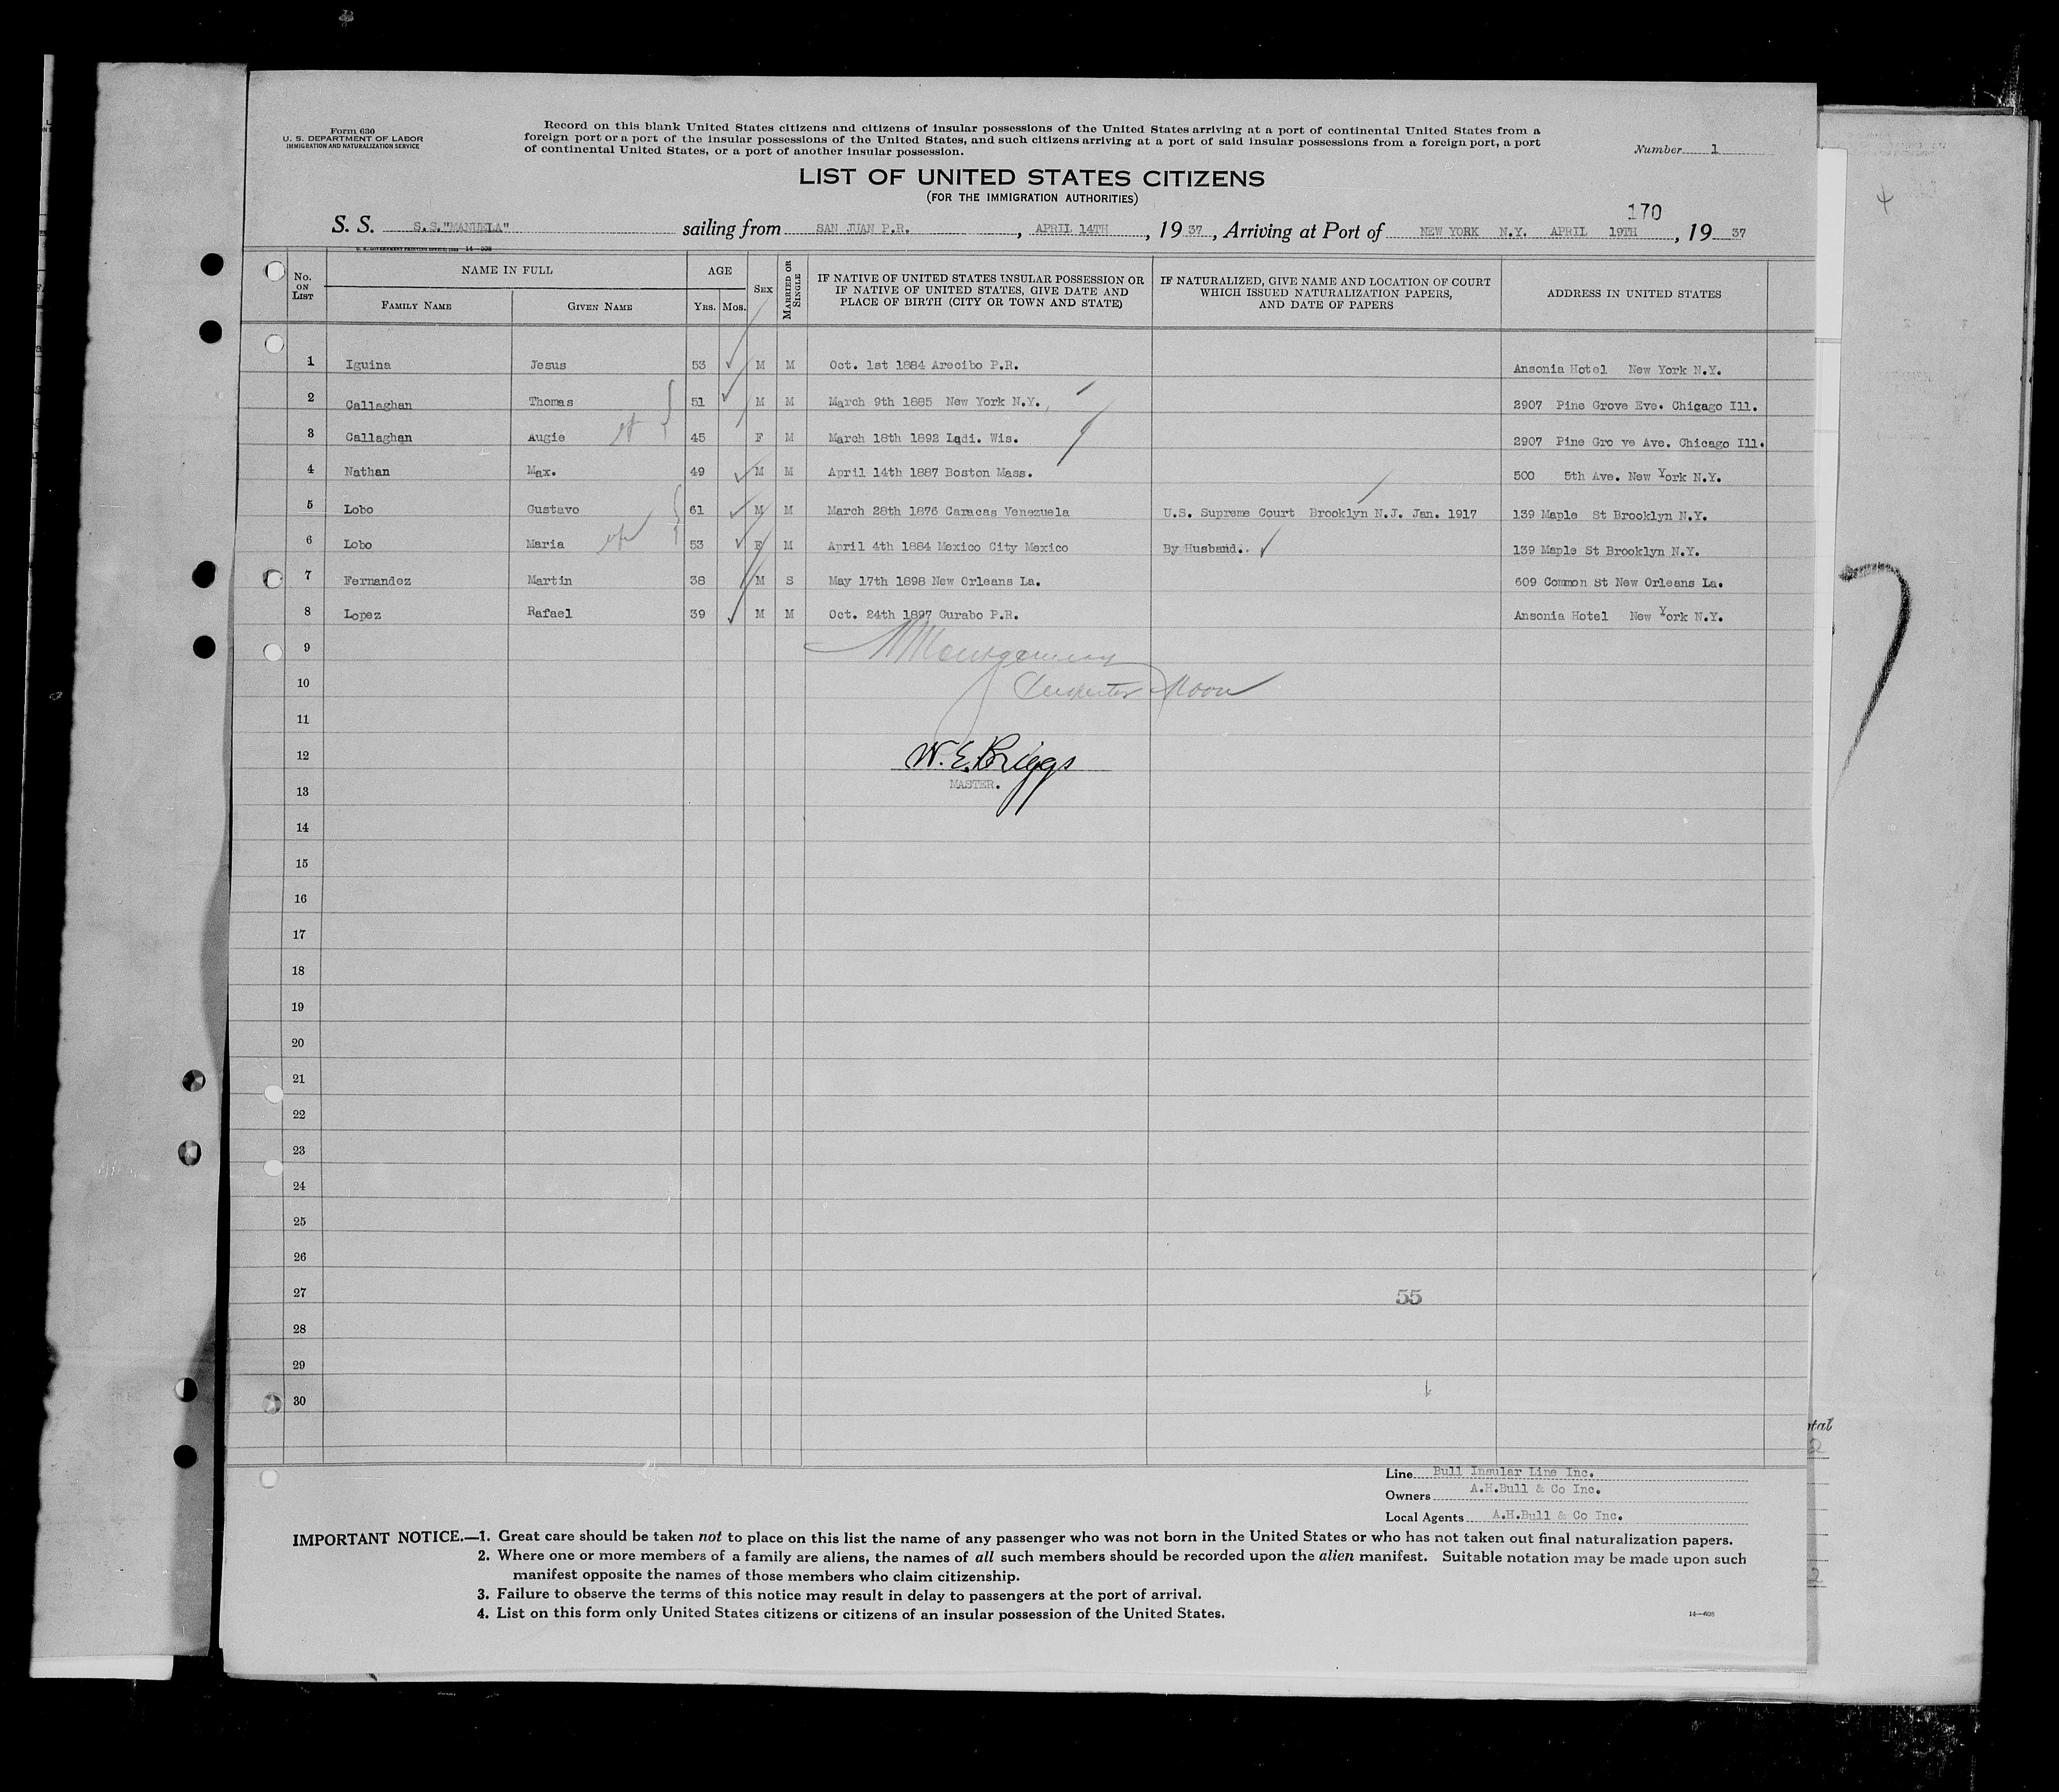 Form 630
U. S. DEPARTMENT OF LABOR
IMMIGRATION AND NATURALIZATION SERVICE
Record on this blank United States citizens and citizens of insular possessions of the United States arriving at a port of continental United States from a
foreign port or a port of the insular possessions of the United States, and such citizens arriving at a port of said insular possessions from a foreign port, a port
of continental United States, or a port of another insular possession.
Number 1
LIST OF UNITED STATES CITIZENS
(FOR THE IMMIGRATION AUTHORITIES)
170
S. S. S.S."MANUELA" sailing from SAN JUAN P.R. , APRIL 14TH , 19 37 , Arriving at Port of NEW YORK N.Y. APRIL 19TH , 19 37
No. ON LIST NAME IN FULL AGE SEX MARRIED OR SINGLE IF NATIVE OF UNITED STATES INSULAR POSSESSION OR IF NATIVE OF UNITED STATES, GIVE DATE AND PLACE OF BIRTH (CITY OR TOWN AND STATE) IF NATURALIZED, GIVE NAME AND LOCATION OF COURT WHICH ISSUED NATURALIZATION PAPERS, AND DATE OF PAPERS ADDRESS IN UNITED STATES
FAMILY NAME GIVEN NAME YRS. MOS.
1 Iguina Jesus 53 M M Oct. 1st 1884 Arecibo P.R. Ansonia Hotel New York N.Y.
2 Callaghan Thomas 51 M M March 9th 1885 New York N.Y. 2907 Pine Grove Eve. Chicago Ill.
3 Callaghan Augie 45 F M March 18th 1892 Lodi. Wis. 2907 Pine Gro ve Ave. Chicago Ill.
4 Nathan Max. 49 M M April 14th 1887 Boston Mass. 500 5th Ave. New York N.Y.
5 Lobo Gustavo 61 M M March 28th 1876 Caracas Venezuela U.S. Supreme Court Brooklyn N.J. Jan. 1917 139 Maple St Brooklyn N.Y.
6 Lobo Maria 53 F M April 4th 1884 Mexico City Mexico By Husband.. 139 Maple St Brooklyn N.Y.
7 Fernandez Martin 38 M S May 17th 1898 New Orleans La. 609 Common St New Orleans La.
8 Lopez Rafael 39 M M Oct. 24th 1897 Gurabo P.R. Ansonia Hotel New York N.Y.
9 Montgomery
10 Inspector Moon
11
12 W. E. Briggs
MASTER.
13
14
15
16
17
18
19
20
21
22
23
24
25
26
27 55
28
29
30
Line Bull Insular Line Inc.
Owners A.H.Bull & Co Inc.
Local Agents A.H.Bull & Co Inc.
IMPORTANT NOTICE.—1. Great care should be taken not to place on this list the name of any passenger who was not born in the United States or who has not taken out final naturalization papers.
2. Where one or more members of a family are aliens, the names of all such members should be recorded upon the alien manifest. Suitable notation may be made upon such
manifest opposite the names of those members who claim citizenship.
3. Failure to observe the terms of this notice may result in delay to passengers at the port of arrival.
4. List on this form only United States citizens or citizens of an insular possession of the United States.